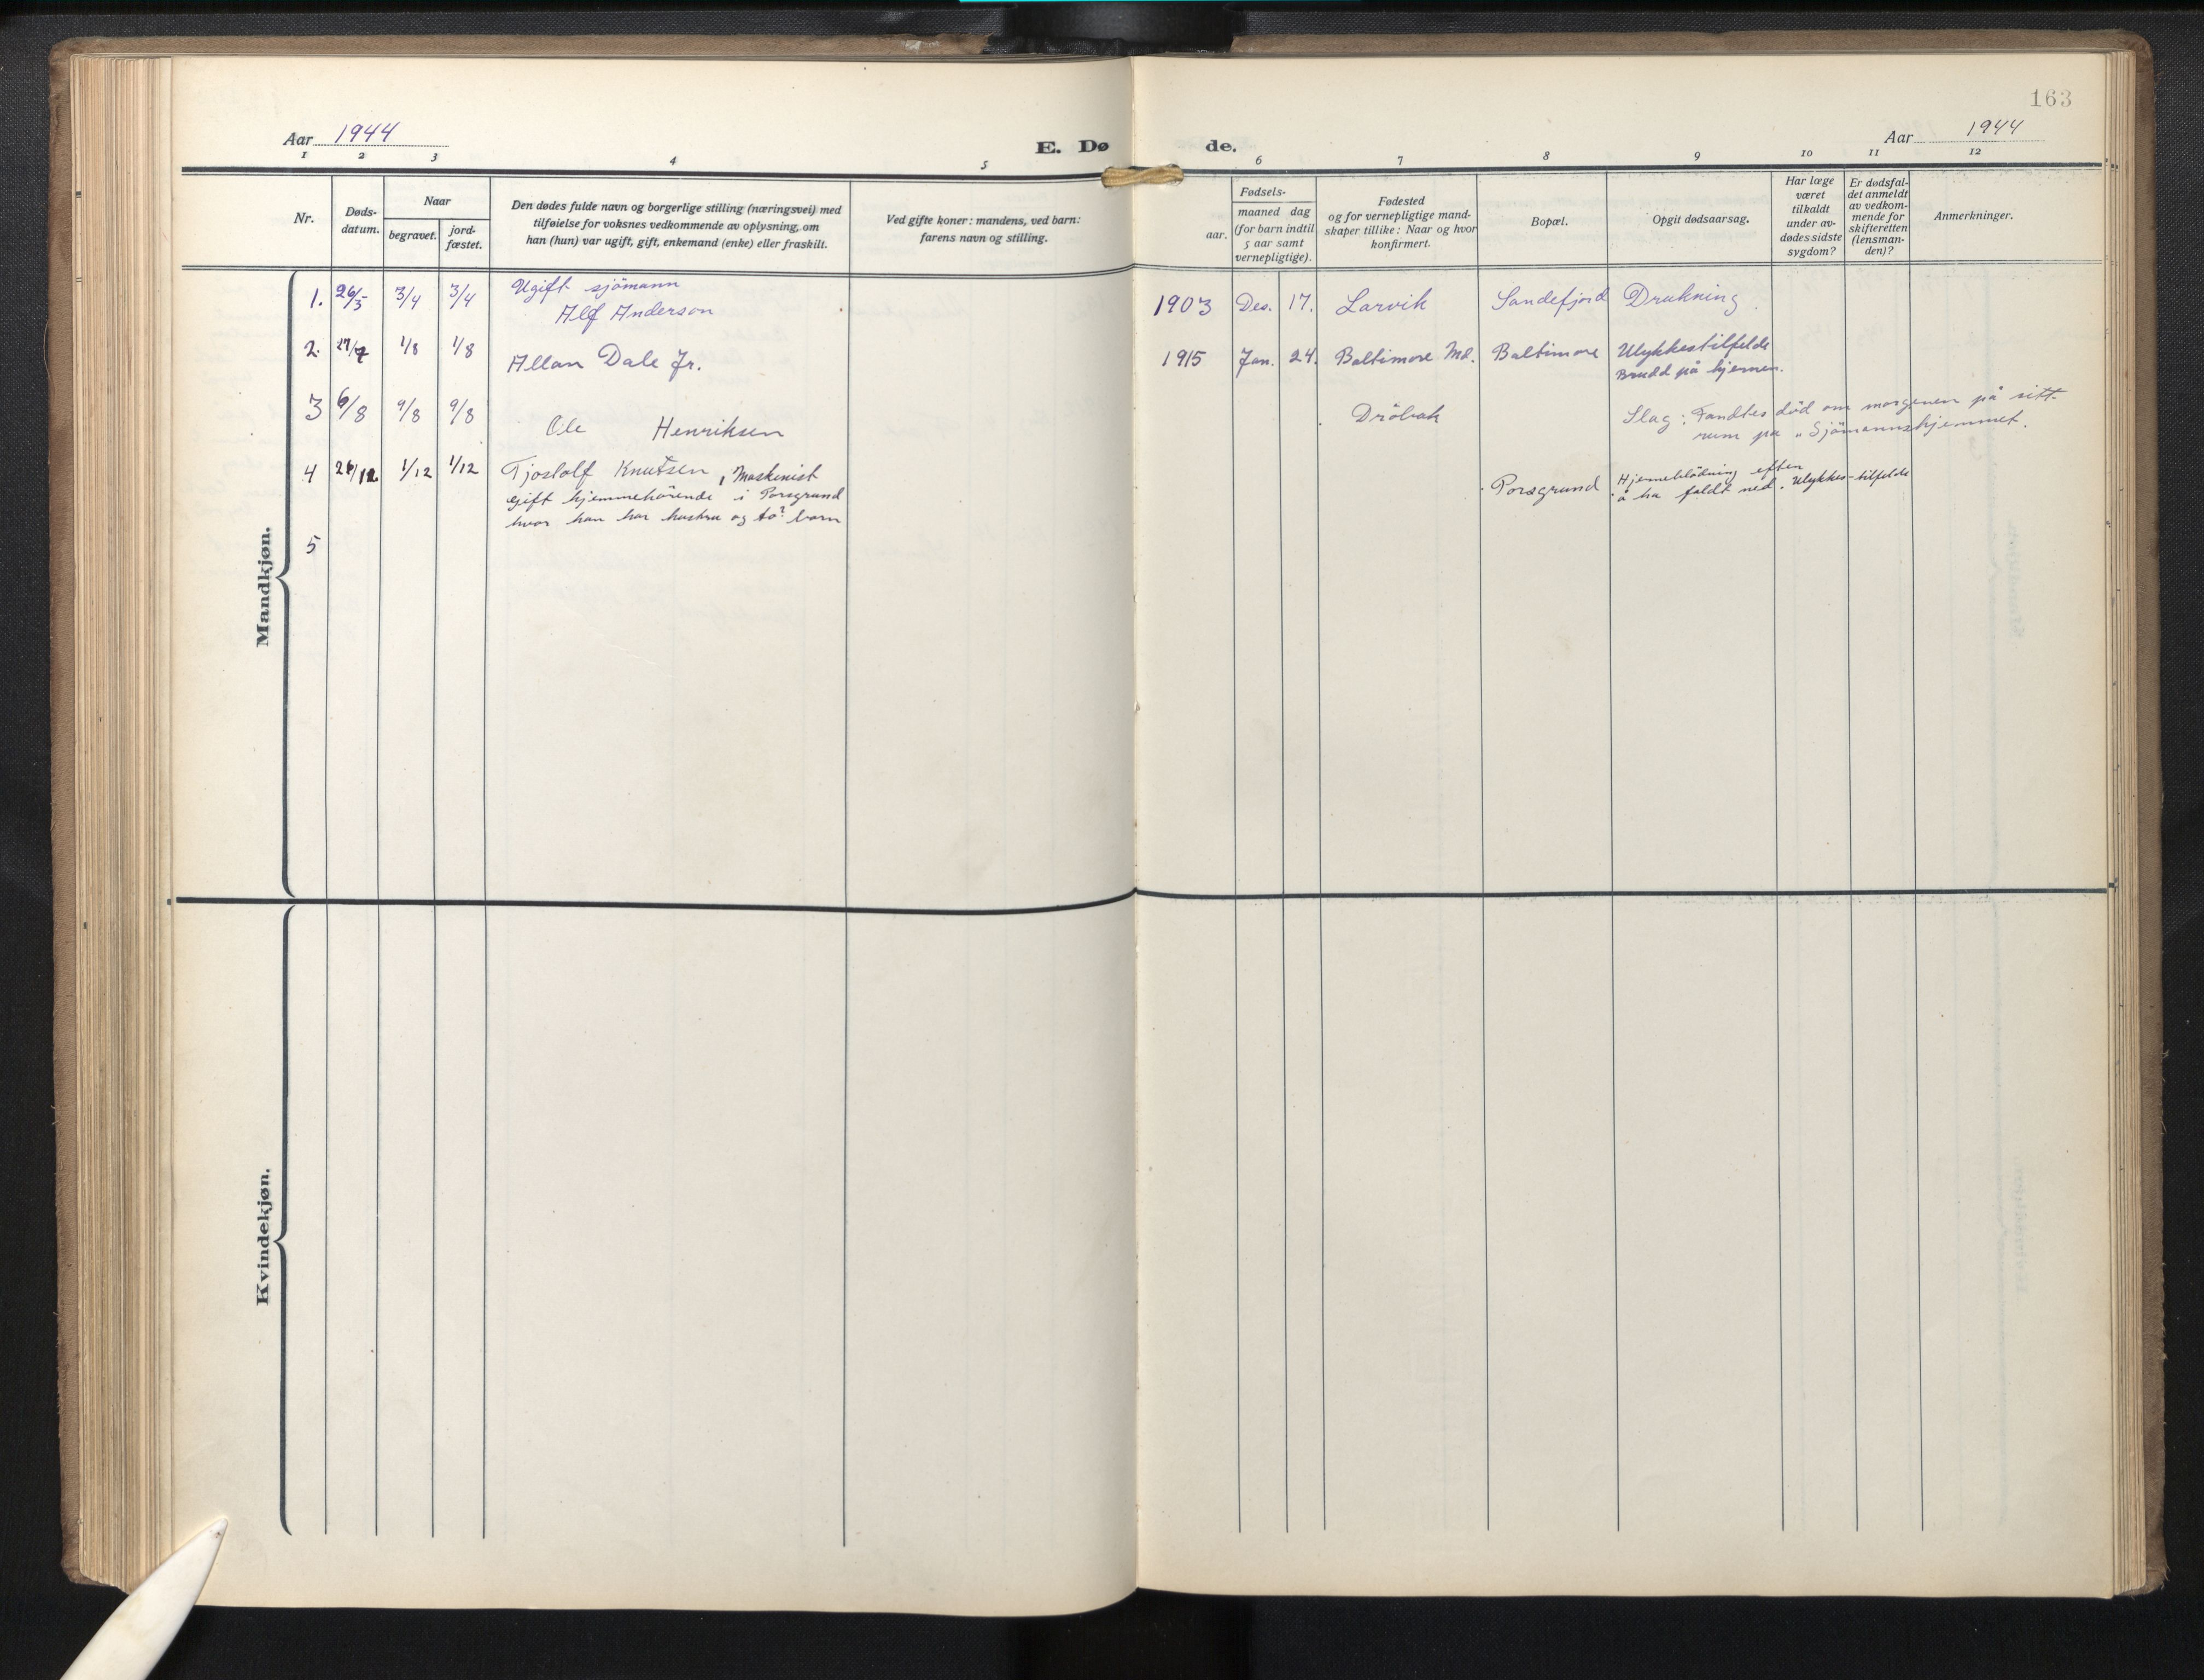 163
Aar 1944
E. Døde.
Aar 1944
1 2 3 4 5 6 7 8 9 10 11 12
Nr.
Døds-
datum.
Naar
begravet.
jord-
fæstet.
Den dødes fulde navn og borgerlige stilling (næringsvei) med
tilføielse for voksnes vedkommende av oplysning, om
han (hun) var ugift, gift, enkemand (enke) eller fraskilt.
Ved gifte koner: mandens, ved barn:
farens navn og stilling.
Fødsels-
aar.
maaned dag
(for barn indtil
5 aar samt
vernepligtige).
Fødested
og for vernepligtige mand-
skaper tillike: Naar og hvor
konfirmert.
Bopæl.
Opgit dødsaarsag.
Har læge
været
tilkaldt
under av-
dødes sidste
sygdom?
Er dødsfal-
det anmeldt
av vedkom-
mende for
skifteretten
(lensman-
den)?
Anmerkninger.
Mandkjøn.
1. 3/4 3/4 Ugift sjömann
Alf Anderson
1903 Des. 17. Larvik Sandefjord Drukning.
2. 27/7 1/8 1/8 Allan Dale Jr.
1915 Jan. 24. Baltimore Md. Baltimore Ulykkestilfelde
Brudd på hjernen.
3 6/8 9/8 9/8 Ole Henriksen
Dröbak Slag: Fandtes död om morgenen på sitt
rum på "Sjömannshjemmet.
4 1/12 1/12 Tjostolf Knutsen, Maskinist
gift hjemmehörende i Porsgrund
hvor han har hustru og to? barn
Porsgrund Hjerneblödning efter
å ha faldt ned. Ulykkes-tilfelde
5
Kvindekjøn.